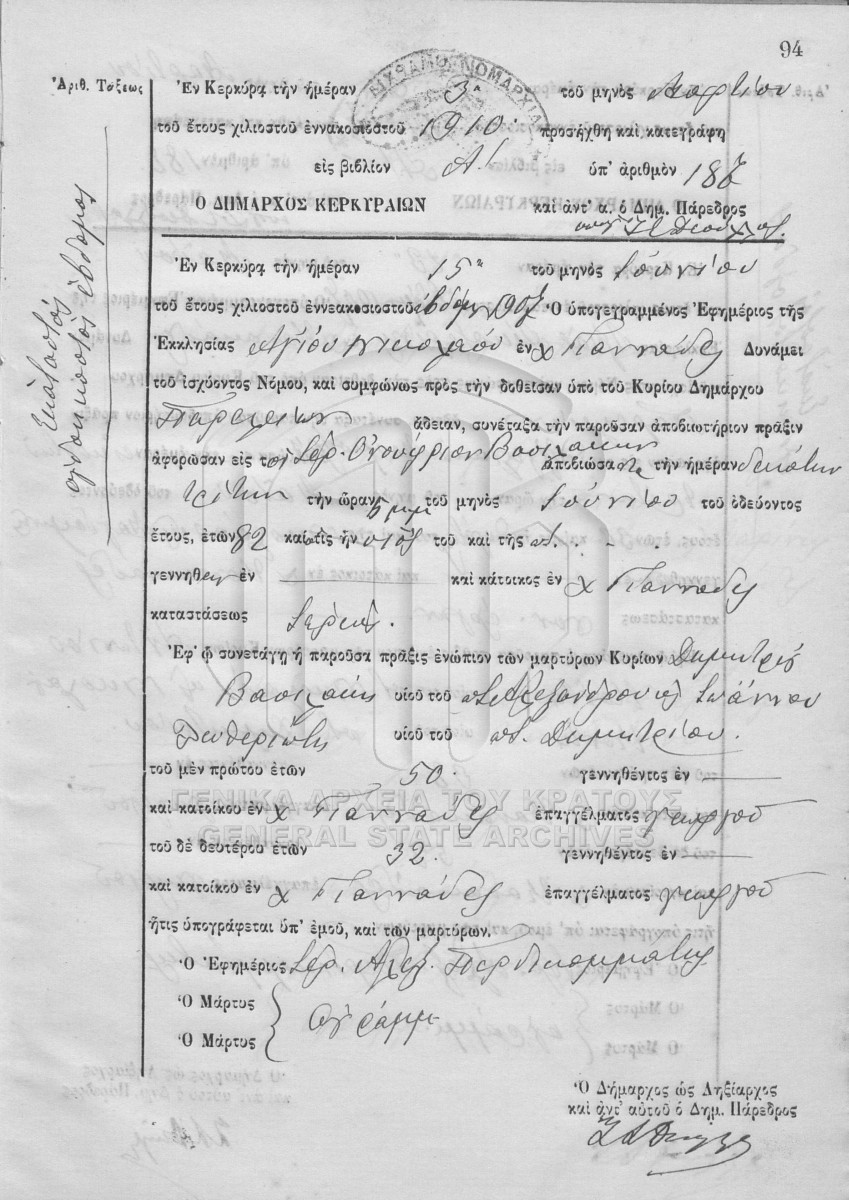 94
Ἀριθ. Τάξεως
Ἐν Κερκύρᾳ τὴν ἡμέραν 3ῃ τοῦ μηνὸς Μαρτίου
τοῦ ἔτους χιλιοστοῦ ἐννακοσιοστοῦ 1910 προσήχθη καὶ κατεγράφη
εἰς βιβλίον Α' ὑπ' ἀριθμὸν 187
Ο ΔΗΜΑΡΧΟΣ ΚΕΡΚΥΡΑΙΩΝ καὶ ἀντ' α. ὁ Δημ. Πάρεδρος
Ἑκατοστὸς
ὀγδοηκοστὸς ἕβδομος
Ἐν Κερκύρᾳ τὴν ἡμέραν 15ῃ τοῦ μηνὸς Ἰουνίου
τοῦ ἔτους χιλιοστοῦ ἐννεακοσιοστοῦ ἑβδόμου 907 Ὁ ὑπογεγραμμένος Ἐφημέριος τῆς
Ἐκκλησίας Ἁγίου Νικολάου ἐν χ Γιαννάδες Δυνάμει
τοῦ ἰσχύοντος Νόμου, καὶ συμφώνως πρὸς τὴν δοθεῖσαν ὑπὸ τοῦ Κυρίου Δημάρχου
Παρελίων ἄδειαν, συνέταξα τὴν παροῦσαν ἀποβιωτήριον πρᾶξιν
ἀφορῶσαν εἰς τὸν Ἱερ. Ὀνούφριον Βασιλάκην ἀποβιώσαντα τὴν ἡμέραν δεκάτην
τρίτην τὴν ὥραν 5 μμ τοῦ μηνὸς Ἰουνίου τοῦ ὁδεύοντος
ἔτους, ἐτῶν 82 καὶ τις ἦν υἱὸς τοῦ καὶ τῆς
γεννηθεὶς ἐν καὶ κάτοικος ἐν χ Γιαννάδες
καταστάσεως Ἱερεὺς.
Ἐφ' ᾧ συνετάγη ἡ παροῦσα πρᾶξις ἐνώπιον τῶν μαρτύρων Κυρίων Δημητρίου
Βασιλάκη υἱοῦ τοῦ ποτ. Ἀλεξάνδρου κ Ἰωάννου
Πουθεριώτη υἱοῦ τοῦ ποτ. Δημητρίου.
τοῦ μὲν πρώτου ἐτῶν 50. γεννηθέντος ἐν
καὶ κατοίκου ἐν χ Γιαννάδες ἐπαγγέλματος γεωργοῦ
τοῦ δὲ δευτέρου ἐτῶν 32. γεννηθέντος ἐν
καὶ κατοίκου ἐν χ Γιαννάδες ἐπαγγέλματος γεωργοῦ
ἥτις ὑπογράφεται ὑπ' ἐμοῦ, καὶ τῶν μαρτύρων.
Ὁ Ἐφημέριος Ἱερ. Ἀλεξ. Περδικομμάτης
Ὁ Μάρτυς
Ὁ Μάρτυς
ἀγράμμ
Ὁ Δήμαρχος ὡς Ληξίαρχος
καὶ ἀντ' αὐτοῦ ὁ Δημ. Πάρεδρος
ΓΕΝΙΚΑ ΑΡΧΕΙΑ ΤΟΥ ΚΡΑΤΟΥΣ
GENERAL STATE ARCHIVES